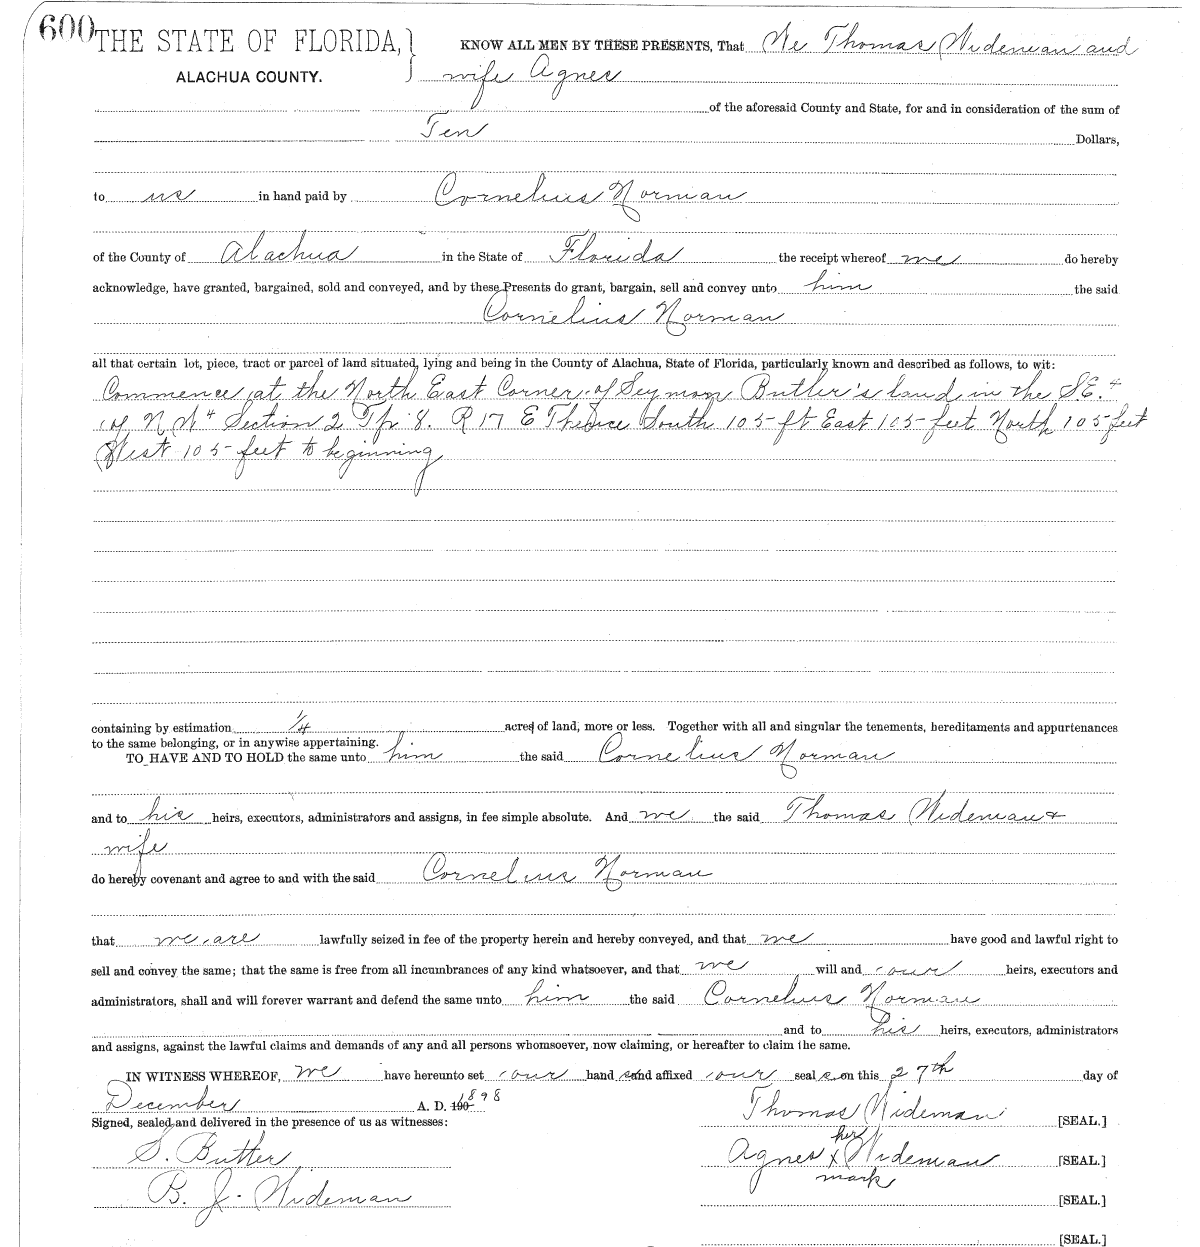 600 THE STATE OF FLORIDA, } KNOW ALL MEN BY THESE PRESENTS, That We Thomas Wideman and
ALACHUA COUNTY. wife Agnes
of the aforesaid County and State, for and in consideration of the sum of
Ten Dollars,
to us in hand paid by Cornelius Norman
of the County of Alachua in the State of Florida the receipt whereof we do hereby
acknowledge, have granted, bargained, sold and conveyed, and by these Presents do grant, bargain, sell and convey unto him the said
Cornelius Norman
all that certain lot, piece, tract or parcel of land situated, lying and being in the County of Alachua, State of Florida, particularly known and described as follows, to wit:
Commence at the North East Corner of Seymon Butler's land in the S.E. 4
of N.W 4 Section 2 Tp 8. R 17 E Thence South 105 ft East 105 feet North 105 feet
West 105 feet to beginning
containing by estimation 1/4 acres of land, more or less. Together with all and singular the tenements, hereditaments and appurtenances
to the same belonging, or in anywise appertaining.
TO HAVE AND TO HOLD the same unto him the said Cornelius Norman
and to his heirs, executors, administrators and assigns, in fee simple absolute. And we the said Thomas Wideman &
wife
do hereby covenant and agree to and with the said Cornelius Norman
that we are lawfully seized in fee of the property herein and hereby conveyed, and that we have good and lawful right to
sell and convey the same; that the same is free from all incumbrances of any kind whatsoever, and that we will and our heirs, executors and
administrators, shall and will forever warrant and defend the same unto him the said Cornelius Norman
and to his heirs, executors, administrators
and assigns, against the lawful claims and demands of any and all persons whomsoever, now claiming, or hereafter to claim the same.
IN WITNESS WHEREOF, we have hereunto set our hand s and affixed our seal s on this 27th day of
December A. D. 1898 Thomas Wideman [SEAL.]
Signed, sealed and delivered in the presence of us as witnesses:
her
S. Butler Agnes x Wideman [SEAL.]
mark
B. J. Wideman [SEAL.]
[SEAL.]